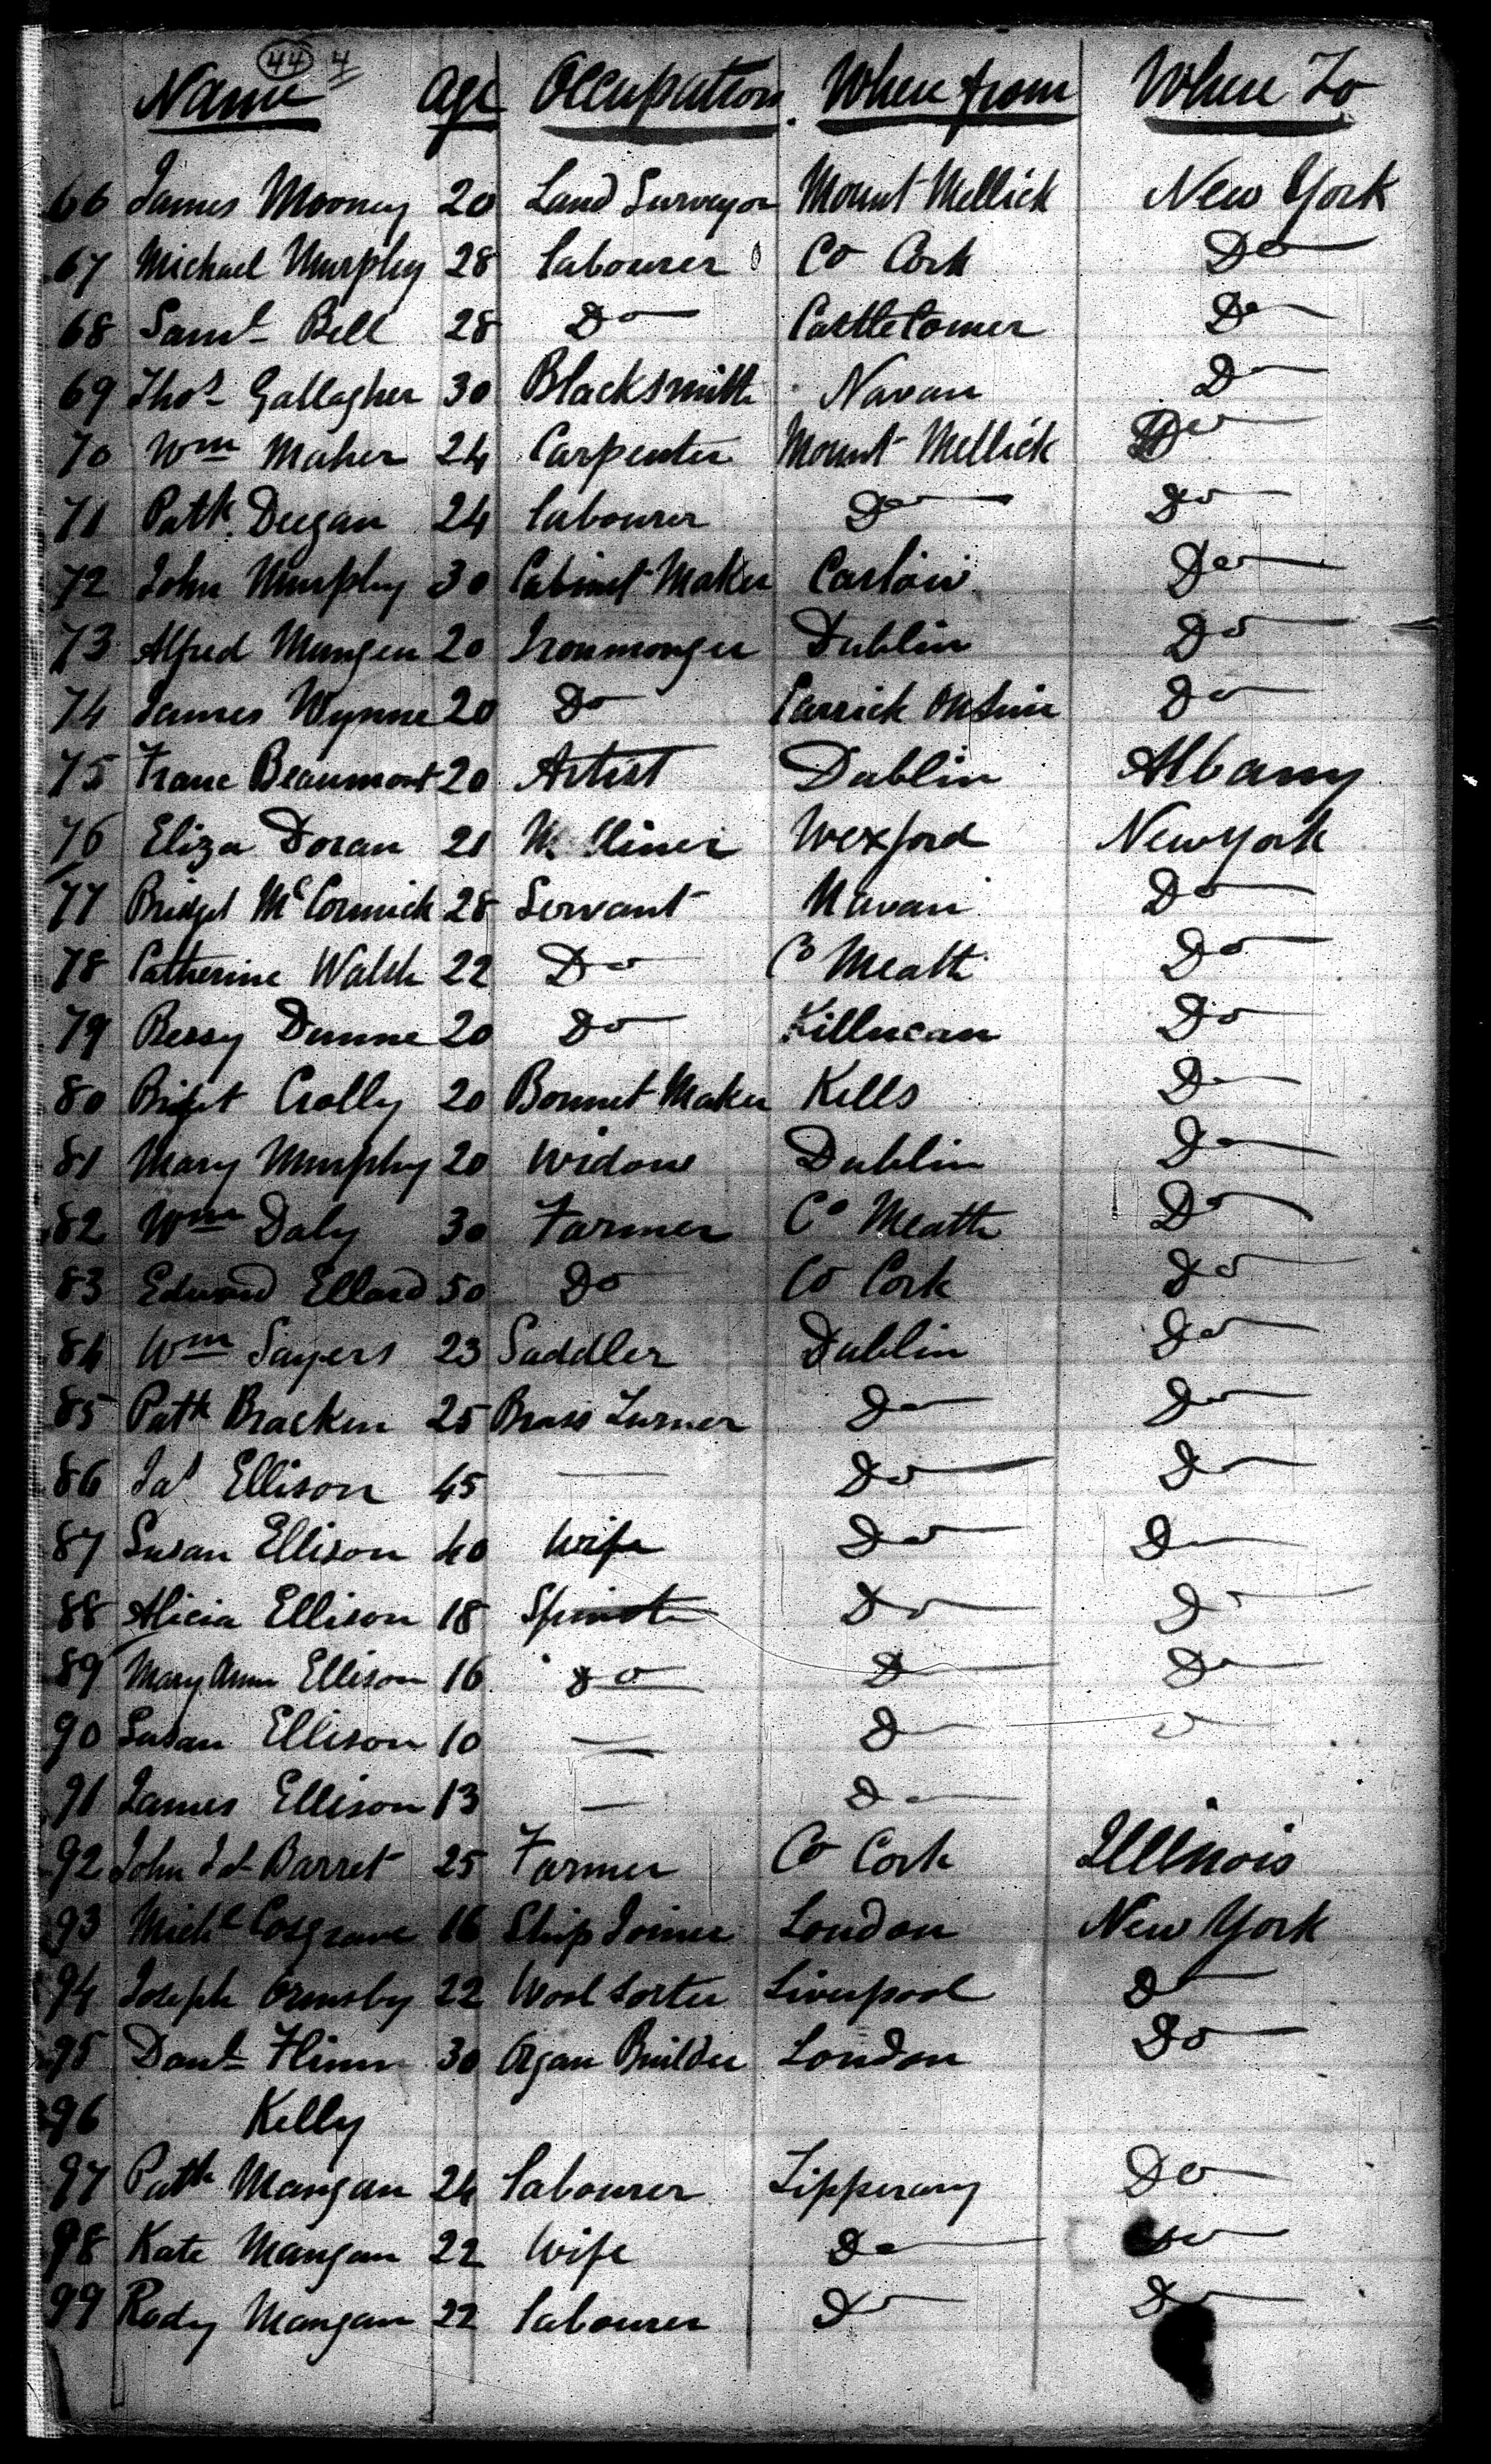 44 4
Name Age Occupation Where from Where To
66 James Mooney 20 Land Surveyor Mount Mellick New York
67 Michael Murphy 28 Labourer Co Cork Do
68 Saml Bell 28 Do CastleComer Do
69 Thos Gallagher 30 Blacksmith Navan Do
70 Wm Maher 24 Carpenter Mount Mellick Do
71 Patk Deegan 24 Labourer Do Do
72 John Murphy 30 Cabinet Maker Carlow Do
73 Alfred Mungen 20 Ironmonger Dublin Do
74 James Wynne 20 Do Carrick On Suir Do
75 Franc Beaumont 20 Artist Dublin Albany
76 Eliza Doran 21 Milliner Wexford New York
77 Bridget McCormick 28 Servant Navan Do
78 Catherine Walsh 22 Do Co Meath Do
79 Bessy Dunne 20 Do Killucan Do
80 Bridget Crolly 20 Bonnet Maker Kells Do
81 Mary Murphy 20 Widow Dublin Do
82 Wm Daly 30 Farmer Co Meath Do
83 Edward Ellard 50 Do Co Cork Do
84 Wm Sayers 23 Saddler Dublin Do
85 Patk Bracken 25 Brass Turner Do Do
86 Jas Ellison 45 — Do Do
87 Susan Ellison 40 Wife Do Do
88 Alicia Ellison 18 Spinster Do Do
89 Mary Ann Ellison 16 Do Do Do
90 Susan Ellison 10 — Do
91 James Ellison 13 — Do
92 John Barret 25 Farmer Co Cork Illinois
93 Michl Cosgrave 16 Ship Joiner London New York
94 Joseph Ormsby 22 Wool Sorter Liverpool Do
95 Danl Flinn 30 Organ Builder London Do
96 Kelly
97 Patk Mangan 24 Labourer Tipperary Do
98 Kate Mangan 22 Wife Do Do
99 Rody Mangan 22 Labourer Do Do